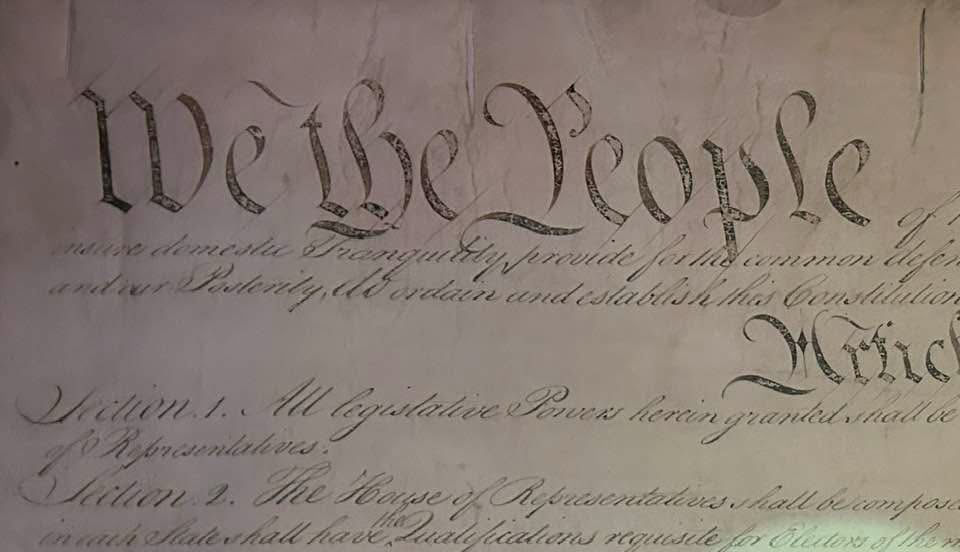 We the People of
ensure domestic Tranquility, provide for the common defen
and our Posterity, do ordain and establish this Constitution
Articl
Section. 1. All legislative Powers herein granted shall be
of Representatives.
Section. 2. The House of Representatives shall be compose
in each State shall have the Qualifications requisite for Electors of the m